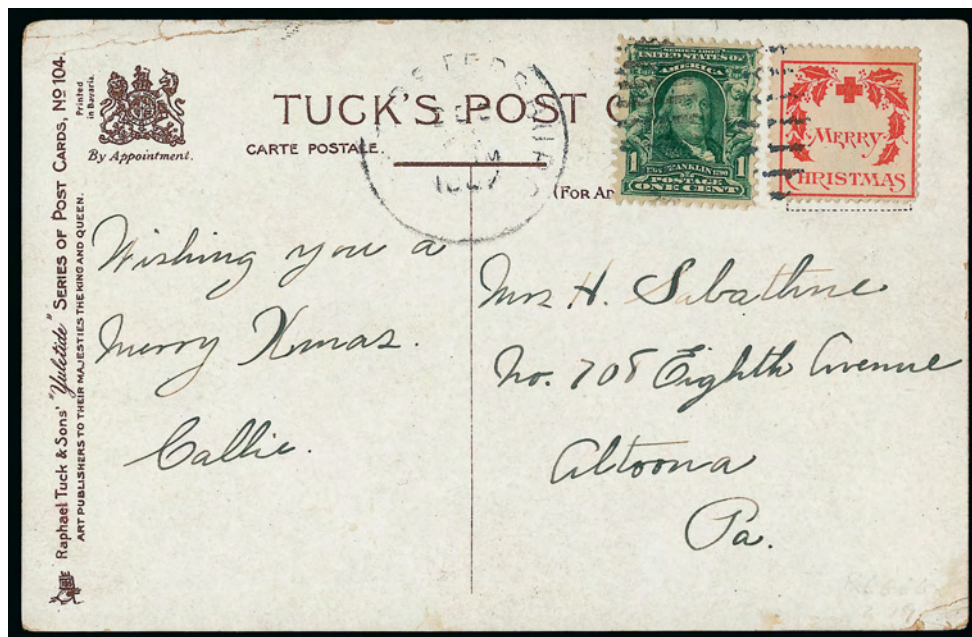 Raphael Tuck & Sons' "Yuletide" SERIES OF POST CARDS, No 104.
ART PUBLISHERS TO THEIR MAJESTIES THE KING AND QUEEN.
Printed
in Bavaria.
By Appointment.
TUCK'S POST C
CARTE POSTALE.
(FOR AD
SERIES 1902
UNITED STATES OF
AMERICA
1 FRANKLIN 1
POSTAGE
ONE CENT
MERRY
CHRISTMAS
1907
Wishing you a
Merry Xmas.
Callie.
Mrs H. Sabathne
No. 708 Eighth Avenue
Altoona
Pa.